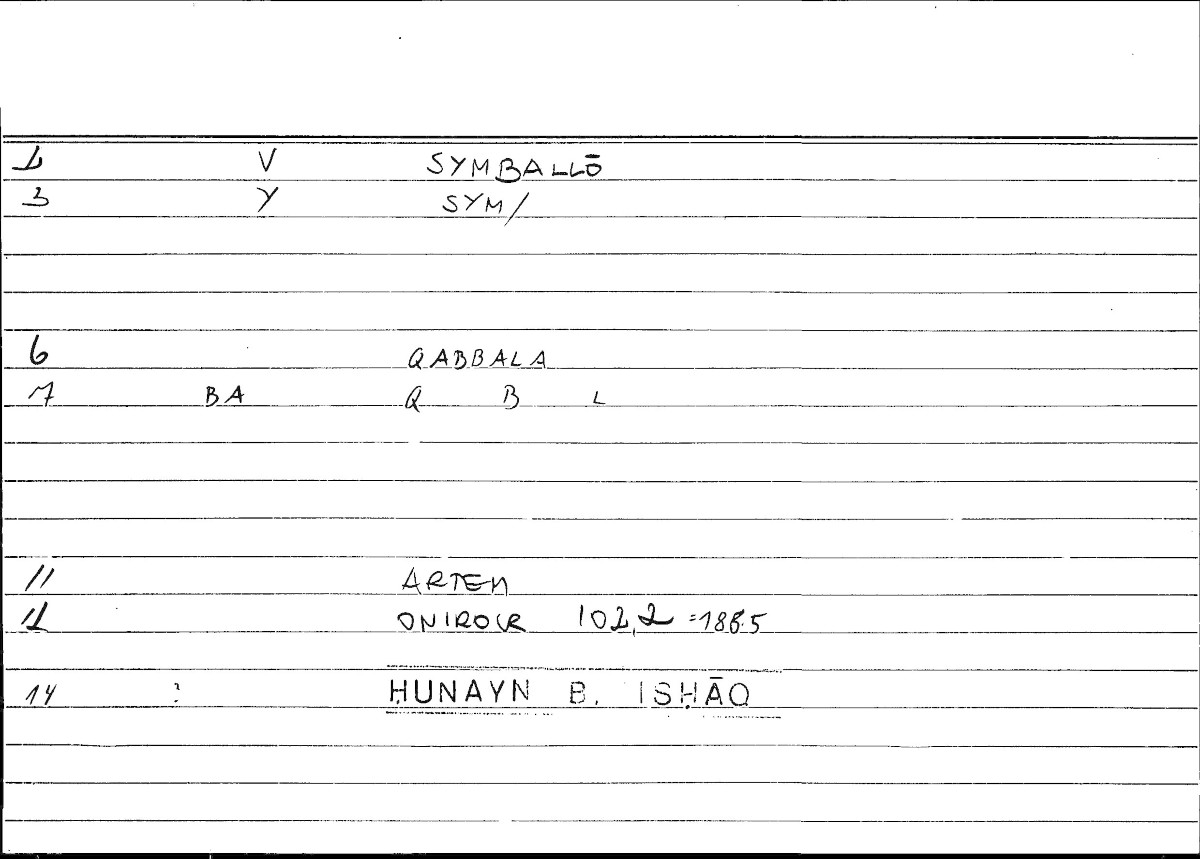 1 V SYMBALLŌ
3 Y SYM/
6 QABBALA
7 BA Q B L
11 ARTEM
12 ONIROCR 102,2 =186.5
14 ? ḤUNAYN B. ISḤĀQ